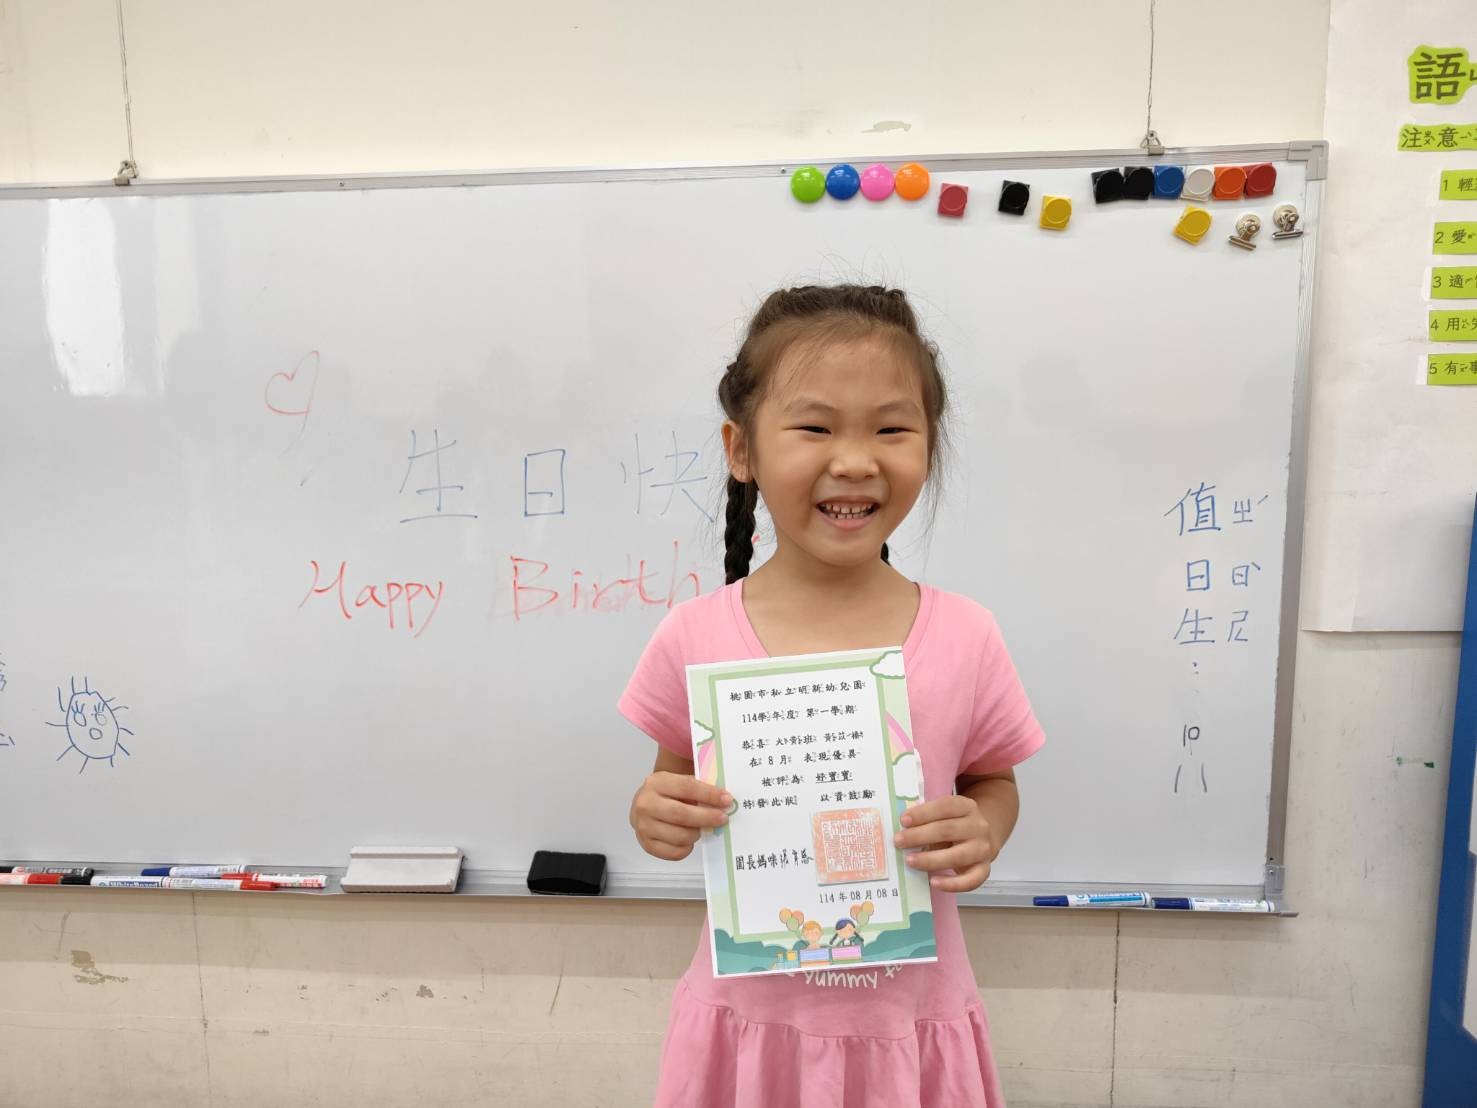 生日快
Happy Birth
值日生：
10
11
桃園市私立明新幼兒園
114學年度 第一學期
恭喜 大黃班 黃苡榛
在 8 月 表現優異
被評為 好寶寶
特發此狀 以資鼓勵
園長媽咪
114 年 08 月 08 日
yummy
語
注意
1 輕
2 愛
3 適
4 用
5 有事